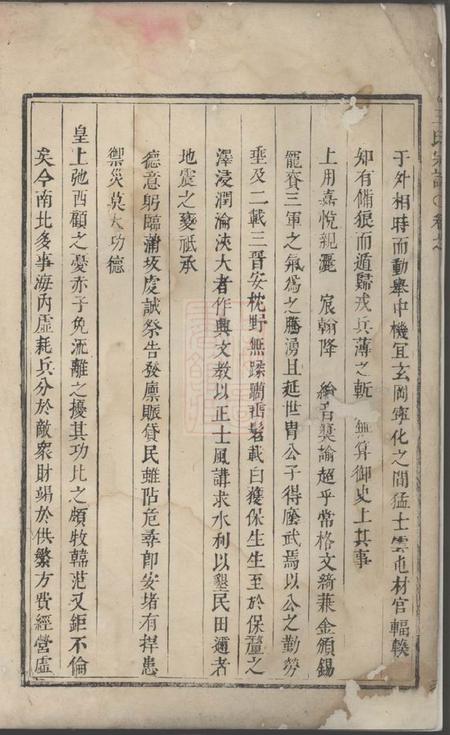 于外相時而動舉中機宜玄岡寧化之間猛士雲屯材官輻輳
知有備狼而遁歸戎兵薄之斬 無算御史上其事
上用嘉悅親灑 宸翰降 綸音奬諭超乎常格文綺兼金頒錫
寵賚三軍之氣為之騰湧且延世胄公子得蔭武焉以公之勤勞
垂及二載三晉安枕野無蹂躪齒髫載白獲保生生至於保釐之
澤浸潤淪浹大者作興文教以正士風講求水利以墾民田邇者
地震之變祇承
德意躬臨蒲坂虔誠祭告發廩賑貸民雖阽危尋即安堵有捍患
禦災莫大功德
皇上弛西顧之憂赤子免流離之擾其功比之頗牧韓范又鉅不倫
矣今南北多事海內虛耗兵分於敵衆財竭於供繁方費經營虛
王氏宗譜 卷之